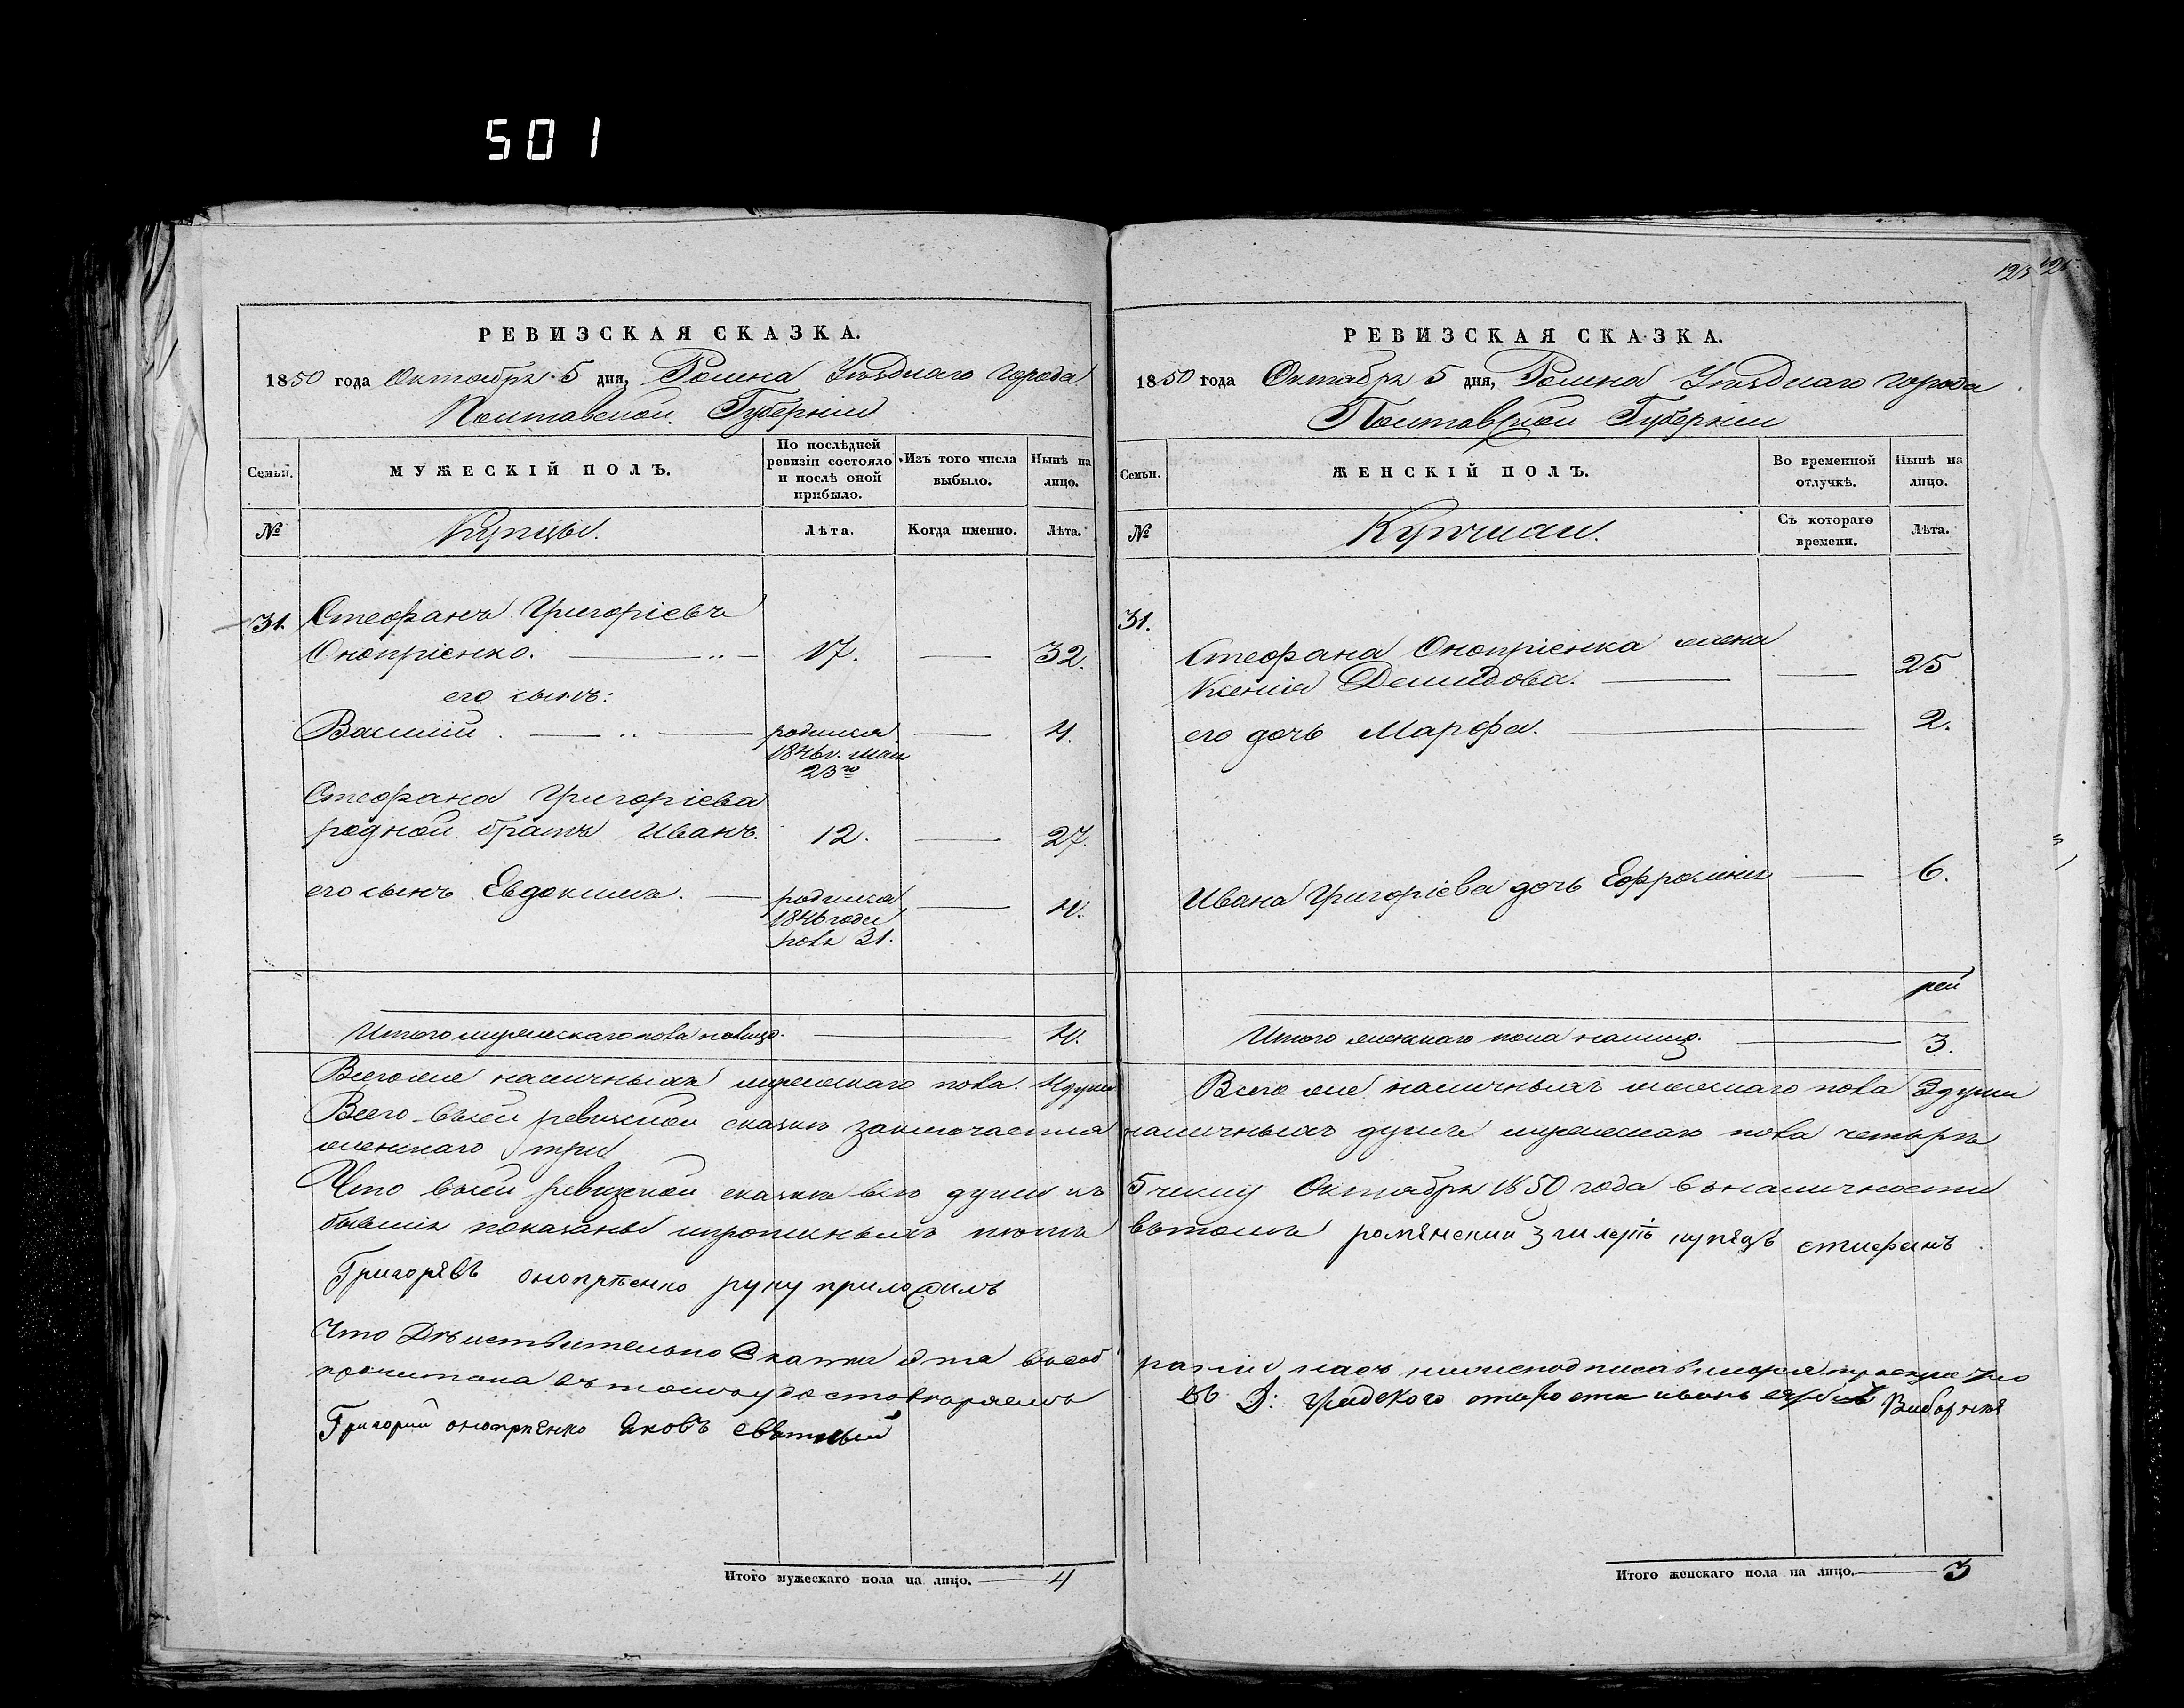 501
125
РЕВИЗСКАЯ СКАЗКА.
1850 года Октября 5 дня, Ромена Уѣзднаго города
Полтавской Губерніи
Семьи.
МУЖЕСКІЙ ПОЛЪ.
По послѣдней ревизіи состояло и послѣ оной прибыло.
Изъ того числа выбыло.
Нынѣ на лицо.
№
Купцы.
Лѣта.
Когда именно.
Лѣта.
31. Стефанъ Григоріевъ
Онопріенко. 17. 32.
его сынъ:
Василій родился 4.
1846 г. мая
23го
Стефана Григоріева
родной братъ Иванъ. 12. 27.
его сынъ Евдокимъ. родился 4.
1846 года
31.
Итого мужескаго пола налицо. 4.
Всего же наличныхъ мужескаго пола. 4 души
РЕВИЗСКАЯ СКАЗКА.
1850 года Октября 5 дня, Ромена Уѣзднаго города
Полтавской Губерніи
Семьи.
ЖЕНСКІЙ ПОЛЪ.
Во временной отлучкѣ.
Нынѣ на лицо.
№
Купчихи.
Съ котораго времени.
Лѣта.
31.
Стефана Онопріенка жена
Ксенія Демидова. 25
его дочь Марфа. 2.
Ивана Григоріева дочь Ефросинія 6.
Итого женскаго пола налицо. 3.
Всего же наличныхъ женскаго пола 3 души
Всего въ сей ревизской сказкѣ заключается наличныхъ душъ мужескаго пола четыре
женскаго три
Что въ сей ревизской сказкѣ всѣ души къ 5 числу Октября 1850 года въ наличности
бывшія показаны и пропускныхъ нѣтъ въ томъ роменский 3 гилдѣи купецъ стефанъ
Григорявъ онопрѣенко руку приложилъ
Что Дѣйствительно Сказка эта въ соб
прочитана въ томъ удостовѣряемъ
градского старости иванъ Виборния
Григорий онопрienко Яковъ
Итого мужескаго пола на лицо. 4
Итого женскаго пола на лицо. 3